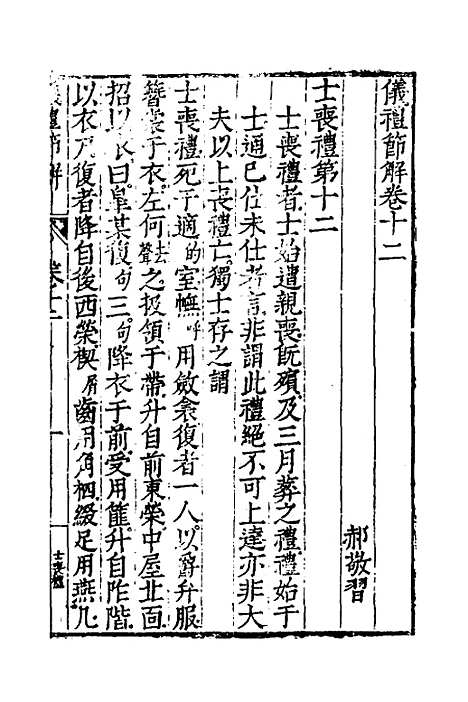 儀禮節解卷十二
郝敬習
士喪禮第十二
士喪禮者士始遭親喪既殯及三月葬之禮禮始于
士通已仕未仕者言非謂此禮絕不可上達亦非大
夫以上喪禮亡獨士存之謂
士喪禮死于適的室幠呼用斂衾復者一人以爵弁服
簪裳于衣左何去聲之扱領于帶升自前東榮中屋北面
招以衣曰臯某復句三句降衣于前受用篚升自阼階
以衣尸復者降自後西榮楔屑齒用角柶綴足用燕几
儀禮節解
卷十二
一
士喪禮